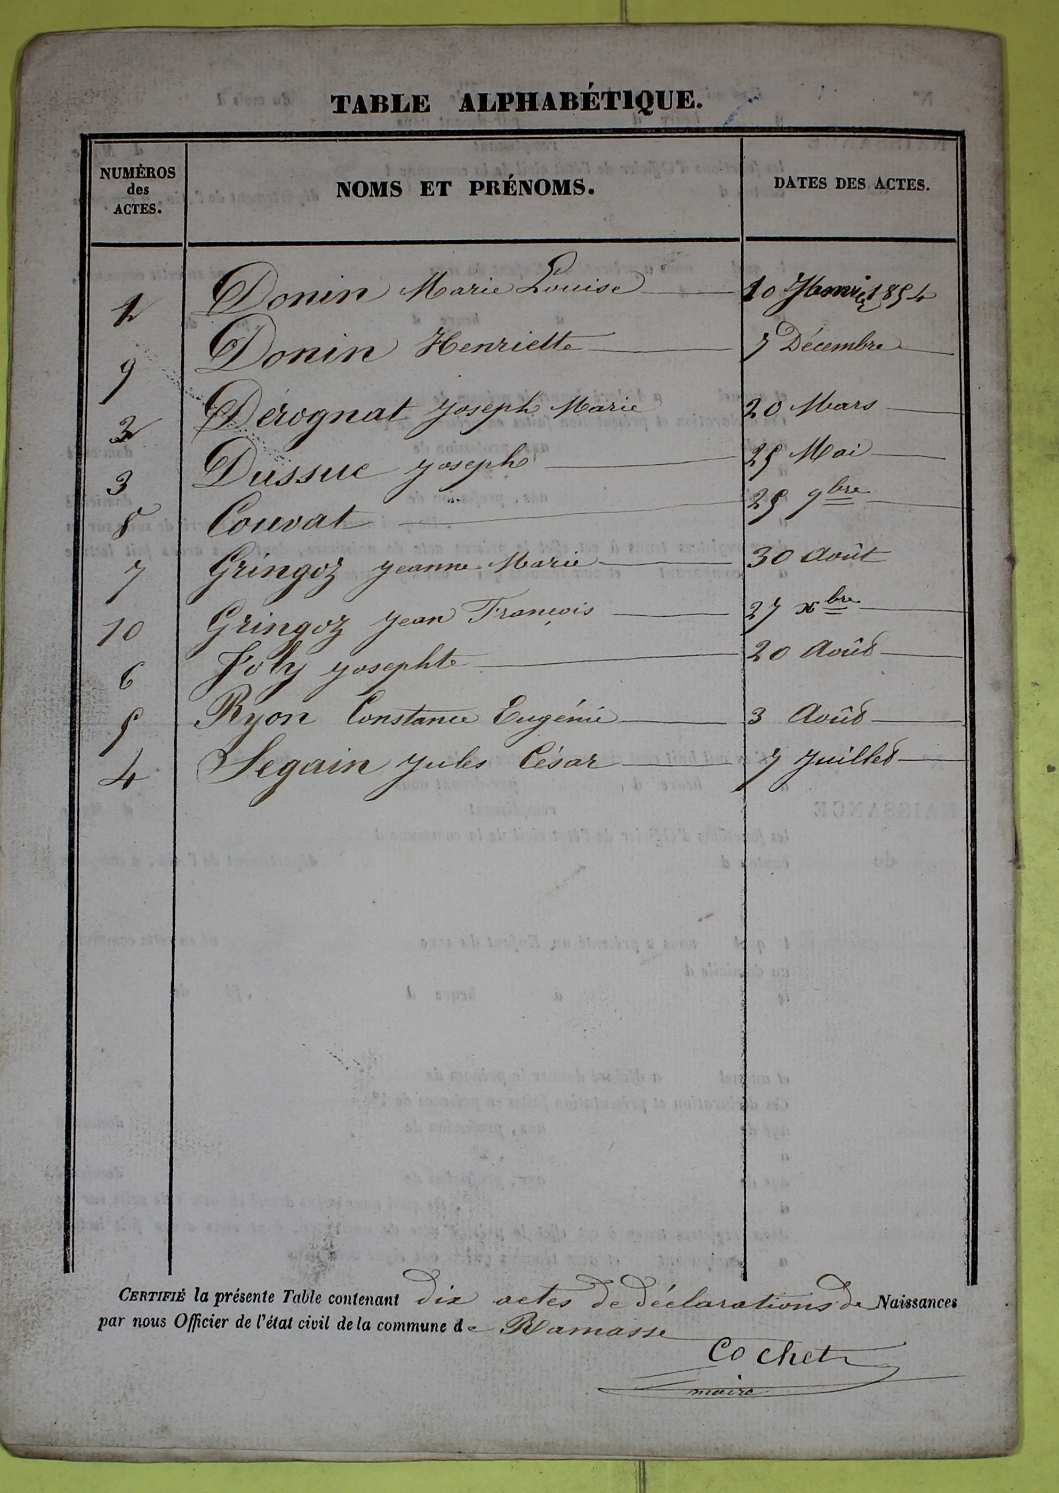 TABLE ALPHABÉTIQUE.
NUMÉROS des ACTES. NOMS ET PRÉNOMS. DATES DES ACTES.
1 Donin Marie Louise 10 1854
9 Donin Henriette 7 Décembre
2 Dérognat Joseph Marie 20 Mars
3 Dussuc Joseph 25 Mai
8 Couvat 25 9bre
7 Gringoz Jeanne Marie 30 Août
10 Gringoz Jean François 27 xbre
6 Joly Josephte 20 Août
5 Ryon Constance Eugénie 3 Août
4 Segain Jules César 7 Juillet
CERTIFIÉ la présente Table contenant dix actes de déclarations de Naissances
par nous Officier de l'état civil de la commune de Ramasse
Cochet
maire